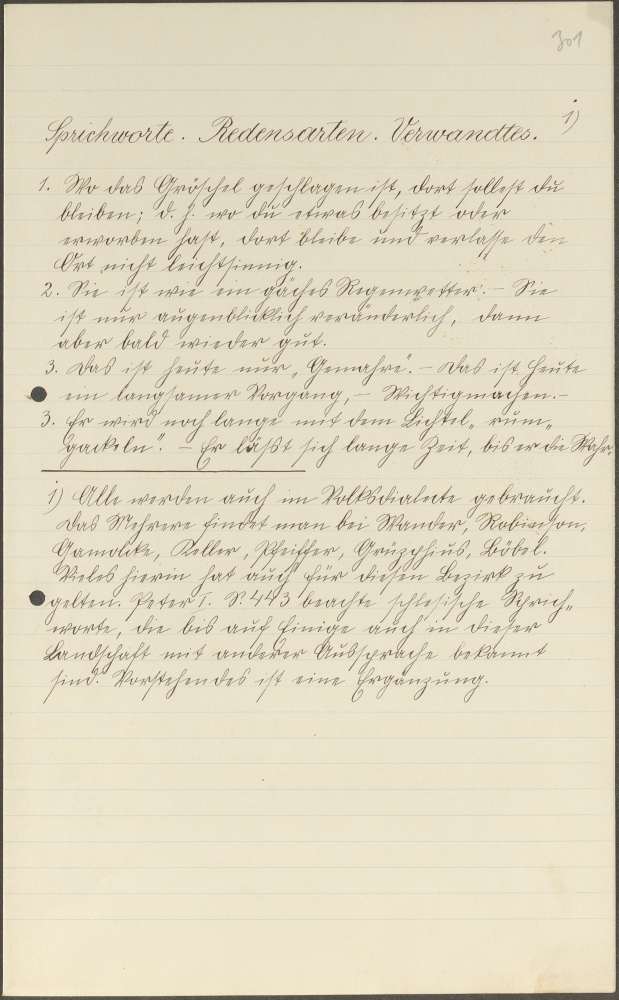 301
Sprichworte. Redensarten. Verwandtes. 1)
1. Wo das Gröschel geschlagen ist, dort sollest du
bleiben; d. h. wo du etwas besitzt oder
erworben hast, dort bleibe und verlasse den
Ort nicht leichtsinnig.
2. Sie ist wie ein gäches Regenwetter. – Sie
ist nur augenblicklich veränderlich, dann
aber bald wieder gut.
3. Das ist heute nur „Gemahre". – Das ist heute
ein langsamer Vorgang, – Wichtigmachen. –
3. Er wird noch lange mit dem Lichtel „rum-
gackeln". – Er läßt sich lange Zeit, bis er die Wahr-
1) Alle werden auch im Volksdialecte gebraucht.
Das Mehrere findet man bei Wander, Robinson,
Gamolcke, Keller, Pfeiffer, Gryphius, Böbel.
Vieles hierin hat auch für diesen Bezirk zu
gelten. Peter I. S. 443 beachte schlesische Sprich-
worte, die bis auf Einige auch in dieser
Landschaft mit anderer Aussprache bekannt
sind. Vorstehendes ist eine Ergänzung.